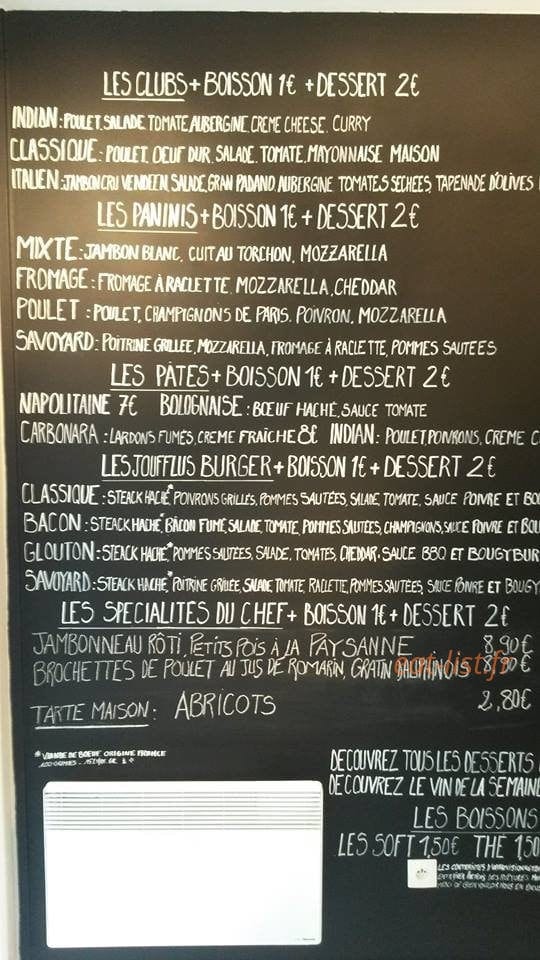 LES CLUBS + BOISSON 1€ + DESSERT 2€
INDIAN: POULET, SALADE TOMATE, AUBERGINE, CREME CHEESE. CURRY
CLASSIQUE: POULET, OEUF DUR, SALADE, TOMATE, MAYONNAISE MAISON
ITALIEN: JAMBON CRU VENDEEN, SALADE, GRAN PADANO, AUBERGINE TOMATES SECHEES, TAPENADE D'OLIVES
LES PANINIS + BOISSON 1€ + DESSERT 2€
MIXTE: JAMBON BLANC, CUIT AU TORCHON, MOZZARELLA
FROMAGE: FROMAGE À RACLETTE, MOZZARELLA, CHEDDAR
POULET: POULET, CHAMPIGNONS DE PARIS, POIVRON, MOZZARELLA
SAVOYARD: POITRINE GRILLEE, MOZZARELLA, FROMAGE À RACLETTE, POMMES SAUTEES
LES PÂTES + BOISSON 1€ + DESSERT 2€
NAPOLITAINE 7€ BOLOGNAISE: BŒUF HACHÉ, SAUCE TOMATE
CARBONARA: LARDONS FUMÉS, CREME FRAICHE 8€ INDIAN: POULET, POIVRONS, CREME C
LES JOUFFLUS BURGER + BOISSON 1€ + DESSERT 2€
CLASSIQUE: STEACK HACHÉ* POIVRONS GRILLÉS, POMMES SAUTÉES, SALADE, TOMATE, SAUCE POIVRE ET BOU
BACON: STEACK HACHÉ* BACON FUMÉ, SALADE, TOMATE, POMMES SAUTÉES, CHAMPIGNONS, SAUCE POIVRE ET BOU
GLOUTON: STEACK HACHÉ* POMMES SAUTÉES, SALADE, TOMATES, CHEDDAR, SAUCE BBQ ET BOUGYBUR
SAVOYARD: STEACK HACHÉ* POITRINE GRILLÉE, SALADE TOMATE, RACLETTE, POMMES SAUTÉES, SAUCE POIVRE ET BOUGY
LES SPECIALITÉS DU CHEF + BOISSON 1€ + DESSERT 2€
JAMBONNEAU RÔTI, PETITS POIS À LA PAYSANNE 8,90€
BROCHETTES DE POULET AU JUS DE ROMARIN, GRATIN DAUPHINOIS 8,90€
TARTE MAISON: ABRICOTS 2,80€
* VIANDE DE BOEUF ORIGINE FRANCE
DECOUVREZ TOUS LES DESSERTS
DECOUVREZ LE VIN DE LA SEMAINE
LES BOISSONS
LES SOFT 1,50€ THE 1,50